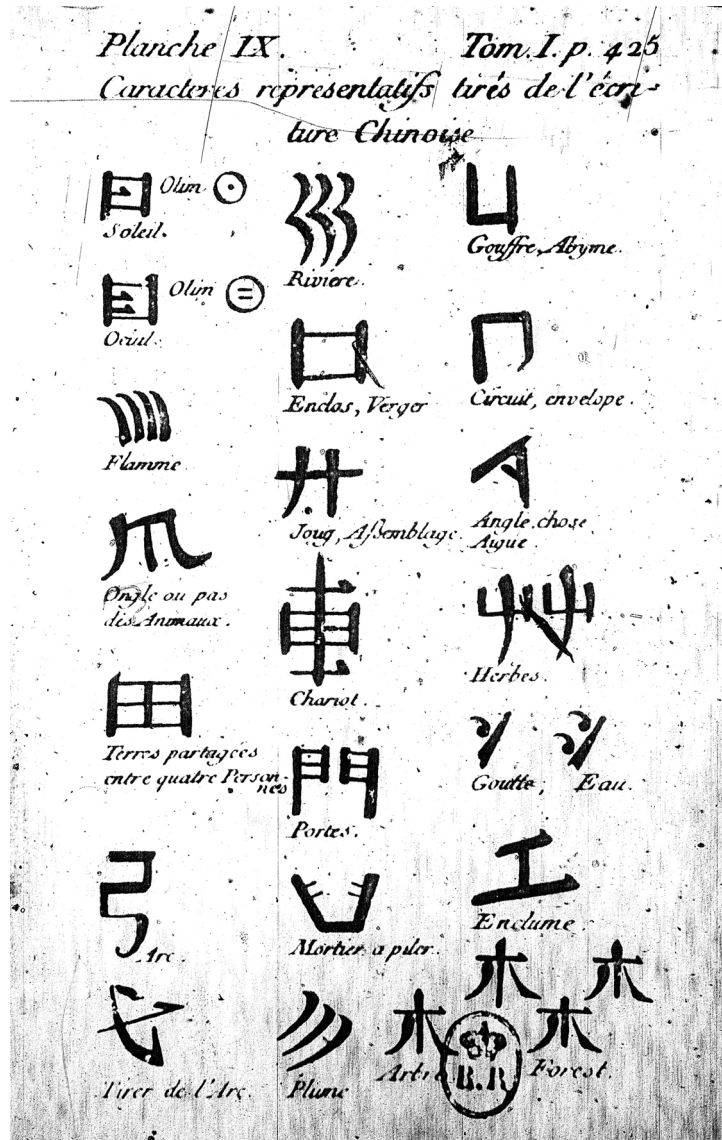 Planche IX. Tom. I. p. 425
Caracteres representatifs tirés de l'écri-
ture Chinoise
日 Olim
Soleil.
目 Olim
Oeuil.
巛
Flamme
爪
Ongle ou pas
des Animaux.
田
Terres partagées
entre quatre Person-
nes
弓
Arc.
弋
Tirer de l'Arc.
巛
Riviere.
口
Enclos, Verger
廾
Joug, Assemblage.
車
Chariot.
門
Portes.
臼
Mortier a piler.
彡
Plume
凵
Gouffre, Abyme.
冂
Circuit, envelope.
Angle, chose
Aigue.
艸
Herbes.
冫 氵
Goutte, Eau.
工
Enclume.
木 木
木 木
Arbre Forest.
B.R